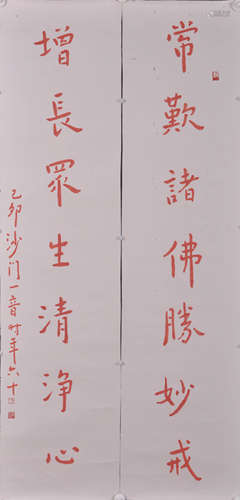 常歎諸佛勝妙戒
增長眾生清淨心
乙卯沙门一音时年六十